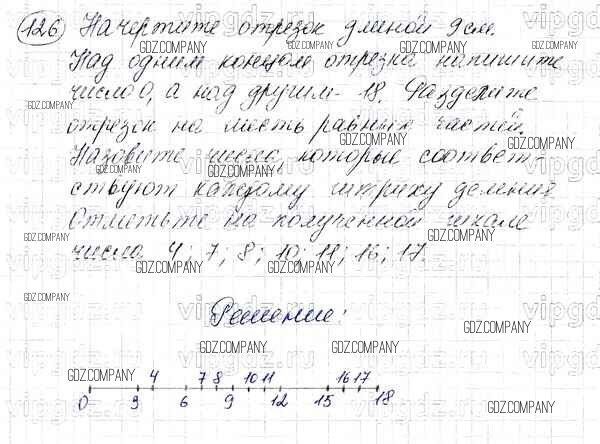 126 Начертите отрезок длиной 9 см.
Над одним концом отрезка напишите
число 0, а над другим - 18. Разделите
отрезок на шесть равных частей.
Назовите числа, которые соответ-
ствуют каждому штриху делений.
Отметьте на полученной шкале
числа 4; 7; 8; 10; 11; 16; 17.
Решение:
4 7 8 10 11 16 17
0 3 6 9 12 15 18
GDZ.COMPANY
vipgdz.ru